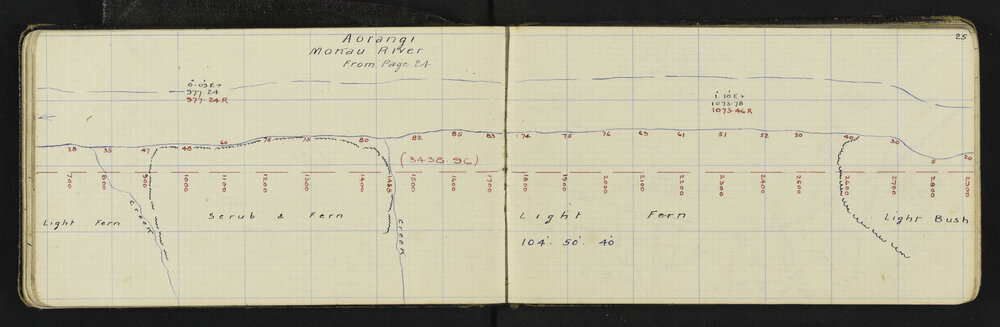 Aorangi
Mokau River
From Page 24
25
977.24
977.24 R
1073.78
1073.46 R
28 35 47 48 60 75 75 80 82 85 83 74 75 76 69 61 51 52 50 40 30 8 20
(3438.96)
700 800 900 1000 1100 1200 1300 1400 1458 1500 1600 1700 1800 1900 2000 2100 2200 2300 2400 2500 2600 2700 2800 2900
Light Fern
Creek
Scrub & Fern
Creek
Light Fern
Light Bush
104° 50' 40"